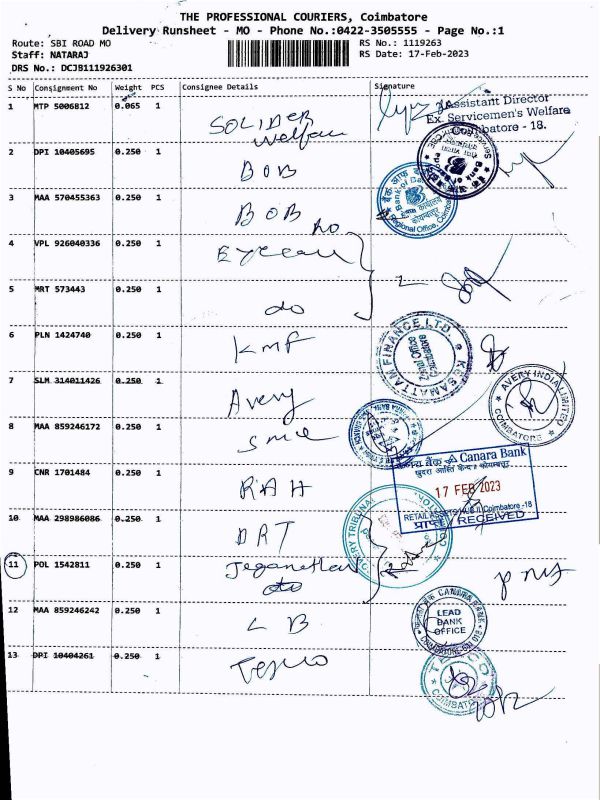 THE PROFESSIONAL COURIERS, Coimbatore
Delivery Runsheet - MO - Phone No.:0422-3505555 - Page No.:1
Route: SBI ROAD MO
RS No.: 1119263
Staff: NATARAJ
RS Date: 17-Feb-2023
DRS No.: DCJB111926301
S No Consignment No Weight PCS Consignee Details Signature
1 MTP 5006812 0.065 1 SOLIDER
Welfare
Assistant Director
Ex. Servicemen's Welfare
Coimbatore - 18.
2 DPI 10405695 0.250 1 BOB
3 MAA 570455363 0.250 1 BOB RO
Regional Office, Coimbatore
4 VPL 926040336 0.250 1
5 MRT 573443 0.250 1 do
6 PLN 1424740 0.250 1 KMF
KOSAMATTAM FINANCE LTD.
7 SLM 314011426 0.250 1 Avery
AVERY INDIA LIMITED
COIMBATORE
8 MAA 859246172 0.250 1 SME
9 CNR 1701484 0.250 1 RAH
केनरा बैंक Canara Bank
17 FEB 2023
RETAIL ASSET HUB II, Coimbatore -18
प्राप्त / RECEIVED
10 MAA 298986086 0.250 1 DRT
11 POL 1542811 0.250 1
do
12 MAA 859246242 0.250 1 LB
CANARA BANK
LEAD
BANK
OFFICE
13 DPI 10404261 0.250 1